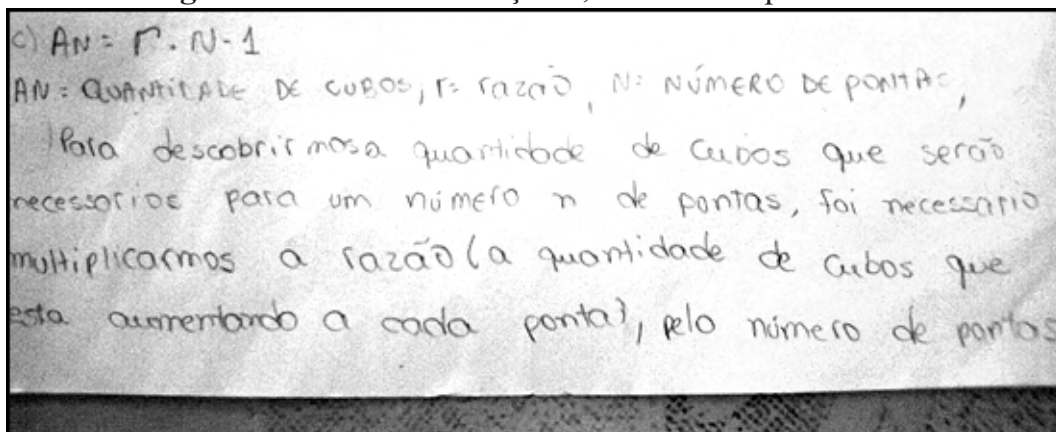 c) AN = r . N - 1
AN = QUANTIDADE DE CUBOS, r = razão, N = NÚMERO DE PONTAS,
Para descobrirmos a quantidade de cubos que serão
necessarios para um número n de pontas, foi necessario
multiplicarmos a razão (a quantidade de cubos que
esta aumentando a cada ponta), pelo número de pontas